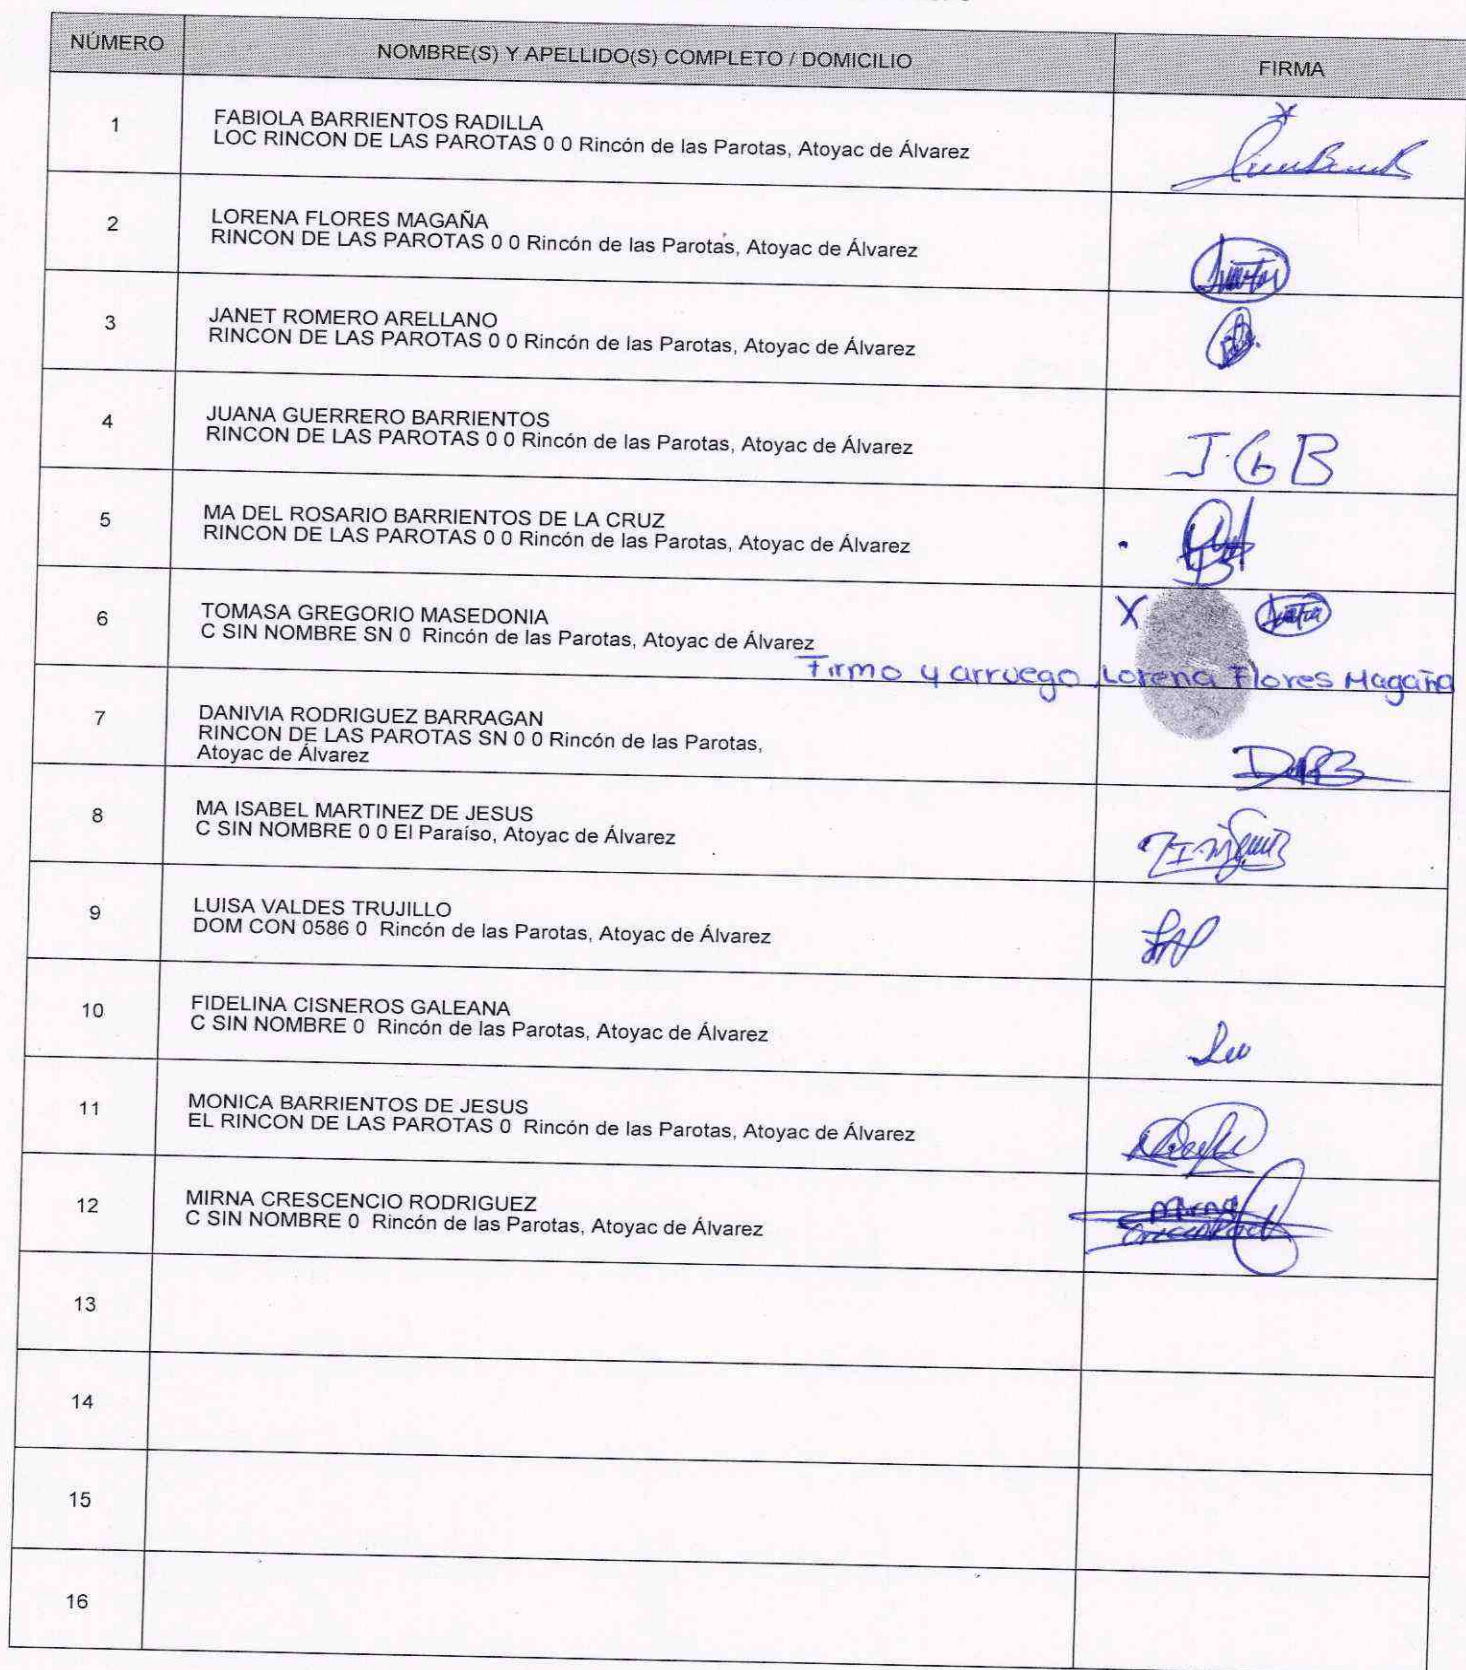 NÚMERO NOMBRE(S) Y APELLIDO(S) COMPLETO / DOMICILIO FIRMA
1 FABIOLA BARRIENTOS RADILLA
LOC RINCON DE LAS PAROTAS 0 0 Rincón de las Parotas, Atoyac de Álvarez
2 LORENA FLORES MAGAÑA
RINCON DE LAS PAROTAS 0 0 Rincón de las Parotas, Atoyac de Álvarez
3 JANET ROMERO ARELLANO
RINCON DE LAS PAROTAS 0 0 Rincón de las Parotas, Atoyac de Álvarez
4 JUANA GUERRERO BARRIENTOS
RINCON DE LAS PAROTAS 0 0 Rincón de las Parotas, Atoyac de Álvarez
J.G B
5 MA DEL ROSARIO BARRIENTOS DE LA CRUZ
RINCON DE LAS PAROTAS 0 0 Rincón de las Parotas, Atoyac de Álvarez
6 TOMASA GREGORIO MASEDONIA X
C SIN NOMBRE SN 0 Rincón de las Parotas, Atoyac de Álvarez
Firmo y arruego Lorena Flores Magaña
7 DANIVIA RODRIGUEZ BARRAGAN
RINCON DE LAS PAROTAS SN 0 0 Rincón de las Parotas,
Atoyac de Álvarez
8 MA ISABEL MARTINEZ DE JESUS
C SIN NOMBRE 0 0 El Paraíso, Atoyac de Álvarez
9 LUISA VALDES TRUJILLO
DOM CON 0586 0 Rincón de las Parotas, Atoyac de Álvarez
10 FIDELINA CISNEROS GALEANA
C SIN NOMBRE 0 Rincón de las Parotas, Atoyac de Álvarez
11 MONICA BARRIENTOS DE JESUS
EL RINCON DE LAS PAROTAS 0 Rincón de las Parotas, Atoyac de Álvarez
12 MIRNA CRESCENCIO RODRIGUEZ
C SIN NOMBRE 0 Rincón de las Parotas, Atoyac de Álvarez
Mirna
13
14
15
16